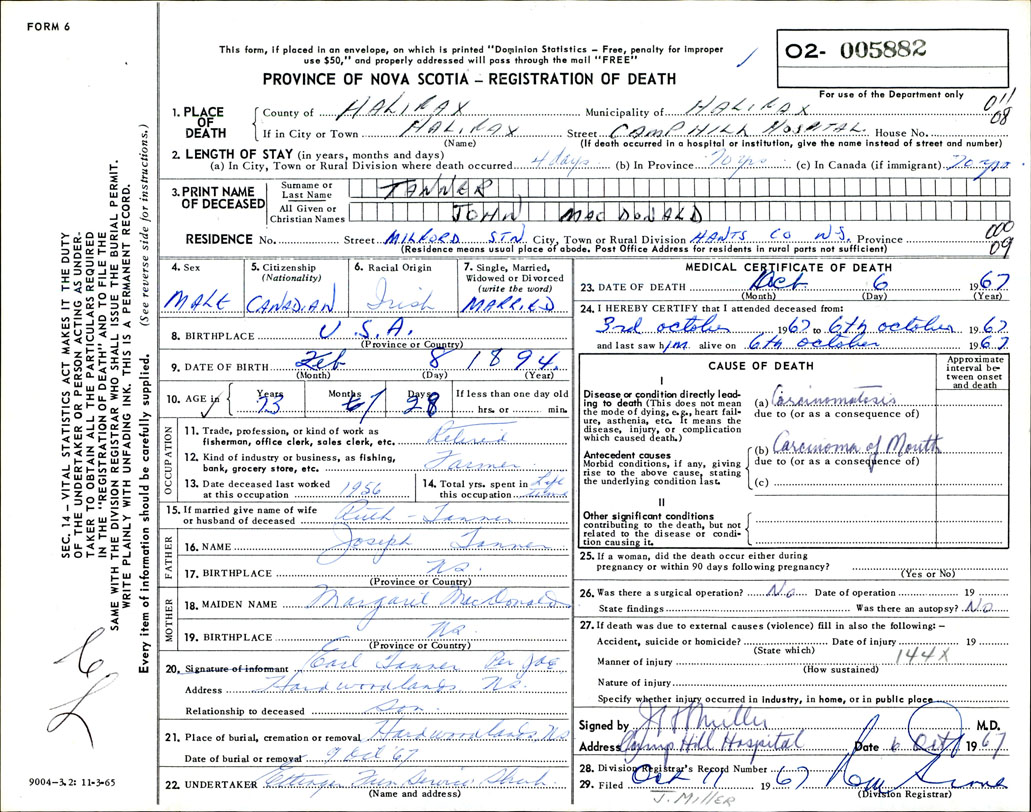 FORM 6
This form, if placed in an envelope, on which is printed "Dominion Statistics – Free, penalty for improper
use $50," and properly addressed will pass through the mail "FREE"
O2- 005882
PROVINCE OF NOVA SCOTIA – REGISTRATION OF DEATH
For use of the Department only
011
08
1. PLACE OF DEATH
County of HALIFAX Municipality of HALIFAX
If in City or Town HALIFAX Street CAMP HILL HOSPITAL House No.
(Name) (If death occurred in a hospital or institution, give the name instead of street and number)
2. LENGTH OF STAY (in years, months and days)
(a) In City, Town or Rural Division where death occurred 4 days (b) In Province 70 yrs (c) In Canada (if immigrant) 70 yrs
3. PRINT NAME OF DECEASED
Surname or Last Name TANNER
All Given or Christian Names JOHN MACDONALD
RESIDENCE No. Street MILFORD STN City, Town or Rural Division HANTS CO N.S. Province
000
09
(Residence means usual place of abode. Post Office Address for residents in rural parts not sufficient)
4. Sex MALE
5. Citizenship (Nationality) CANADIAN
6. Racial Origin Irish
7. Single, Married, Widowed or Divorced (write the word) MARRIED
8. BIRTHPLACE U.S.A.
(Province or Country)
9. DATE OF BIRTH Feb 8 1894
(Month) (Day) (Year)
10. AGE in Years 73 Months 7 Days 28 If less than one day old
hrs. or min.
OCCUPATION
11. Trade, profession, or kind of work as fisherman, office clerk, sales clerk, etc. Retired
12. Kind of industry or business, as fishing, bank, grocery store, etc. Farmer
13. Date deceased last worked at this occupation 1956
14. Total yrs. spent in this occupation Life
15. If married give name of wife or husband of deceased Ruth - Tanner
FATHER
16. NAME Joseph Tanner
17. BIRTHPLACE Ns.
(Province or Country)
MOTHER
18. MAIDEN NAME Margaret MacDonald
19. BIRTHPLACE Ns.
(Province or Country)
20. Signature of informant Earl Tanner Per
Address Hardwoodlands Ns.
Relationship to deceased Son.
21. Place of burial, cremation or removal Hardwoodlands Ns
Date of burial or removal 9 Oct '67
22. UNDERTAKER Ettinger
(Name and address)
MEDICAL CERTIFICATE OF DEATH
23. DATE OF DEATH Oct 6 1967
(Month) (Day) (Year)
24. I HEREBY CERTIFY that I attended deceased from:
3rd october 1967 to 6th october 1967
and last saw him alive on 6th october 1967.
CAUSE OF DEATH
Approximate interval between onset and death
I
Disease or condition directly leading to death (This does not mean the mode of dying, e.g., heart failure, asthenia, etc. It means the disease, injury, or complication which caused death.)
(a) Carcinomatosis
due to (or as a consequence of)
Antecedent causes
Morbid conditions, if any, giving rise to the above cause, stating the underlying condition last.
(b) Carcinoma of Mouth
due to (or as a consequence of)
(c)
II
Other significant conditions
contributing to the death, but not related to the disease or condition causing it.
25. If a woman, did the death occur either during
pregnancy or within 90 days following pregnancy?
(Yes or No)
26. Was there a surgical operation? No Date of operation 19
State findings Was there an autopsy? No
27. If death was due to external causes (violence) fill in also the following: –
Accident, suicide or homicide? Date of injury 19
(State which)
144X
Manner of injury
(How sustained)
Nature of injury
Specify whether injury occurred in industry, in home, or in public place
Signed by Miller M.D.
Address Camp Hill Hospital Date 6 Oct 1967
28. Division Registrar's Record Number
29. Filed Oct 11 1967
J. MILLER
(Division Registrar)
SEC. 14 – VITAL STATISTICS ACT MAKES IT THE DUTY
OF THE UNDERTAKER OR PERSON ACTING AS UNDER-
TAKER TO OBTAIN ALL THE PARTICULARS REQUIRED
IN THE "REGISTRATION OF DEATH" AND TO FILE THE
SAME WITH THE DIVISION REGISTRAR WHO SHALL ISSUE THE BURIAL PERMIT.
WRITE PLAINLY WITH UNFADING INK. THIS IS A PERMANENT RECORD.
Every item of information should be carefully supplied. (See reverse side for instructions.)
9004-3.2: 11-3-65